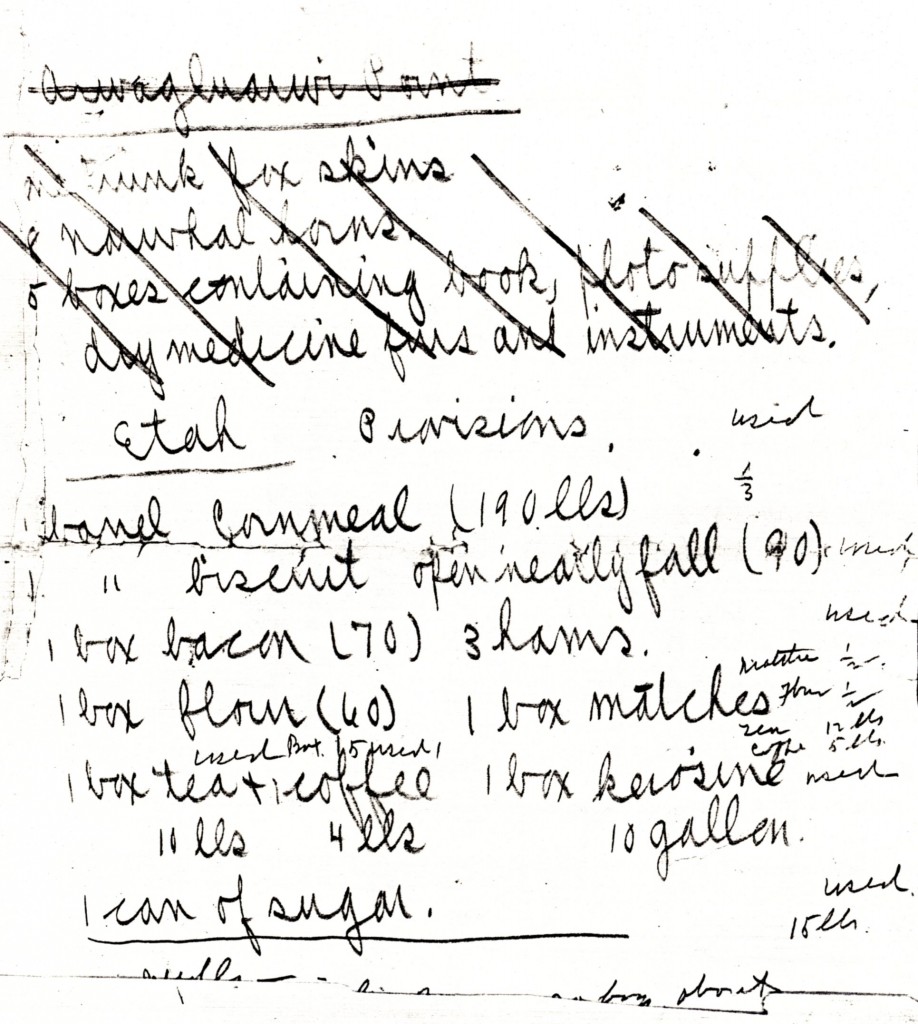 Point
trunk fox skins
narwhal horns.
5 boxes containing book, photo supplies,
dry medicine furs and instruments.
Etah Provisions. used
1/3
1 barrel Cornmeal (190 lbs)
1 " biscuit open neatly full (90) used
used
1 box bacon (70) 3 hams.
matche 1/2
1 box flour (60) 1 box matches flour 1/2
tea 12 lbs
used Box 15 used 1 coffe 5 lbs.
1 box tea + 1 coffee 1 box kerosine used
10 lbs 4 lbs 10 gallon.
used.
1 can of sugar. 15 lbs.
box about